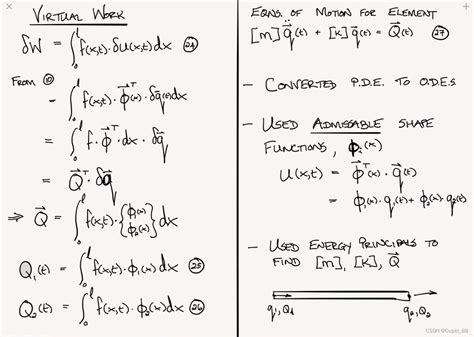 VIRTUAL WORK
δW = ∫₀ˡ f(x,t)·δu(x,t)dx (24)
FROM (10)
= ∫₀ˡ f(x,t)·ϕ⃗ᵀ(x)·δq⃗(t)dx
= ∫₀ˡ f·ϕ⃗ᵀ·dx·δq⃗
= Q⃗ᵀ·δq⃗
⇒ Q⃗ = ∫₀ˡ f(x,t)·{ϕ₁(x) ϕ₂(x)}dx
Q₁(t) = ∫₀ˡ f(x,t)·ϕ₁(x)dx (25)
Q₂(t) = ∫₀ˡ f(x,t)·ϕ₂(x)dx (26)
EQNS. OF MOTION FOR ELEMENT
[m]q̈⃗(t) + [K]q⃗(t) = Q⃗(t) (27)
- CONVERTED P.D.E. TO O.D.E.S
- USED ADMISSABLE SHAPE
FUNCTIONS, ϕᵢ(x)
u(x,t) = ϕ⃗ᵀ(x)·q⃗(t)
= ϕ₁(x)·q₁(t) + ϕ₂(x)·q₂(t)
- USED ENERGY PRINCIPALS TO
FIND [m], [K], Q⃗
q₁, Q₁
q₂, Q₂
CSDN @Cupid_BB